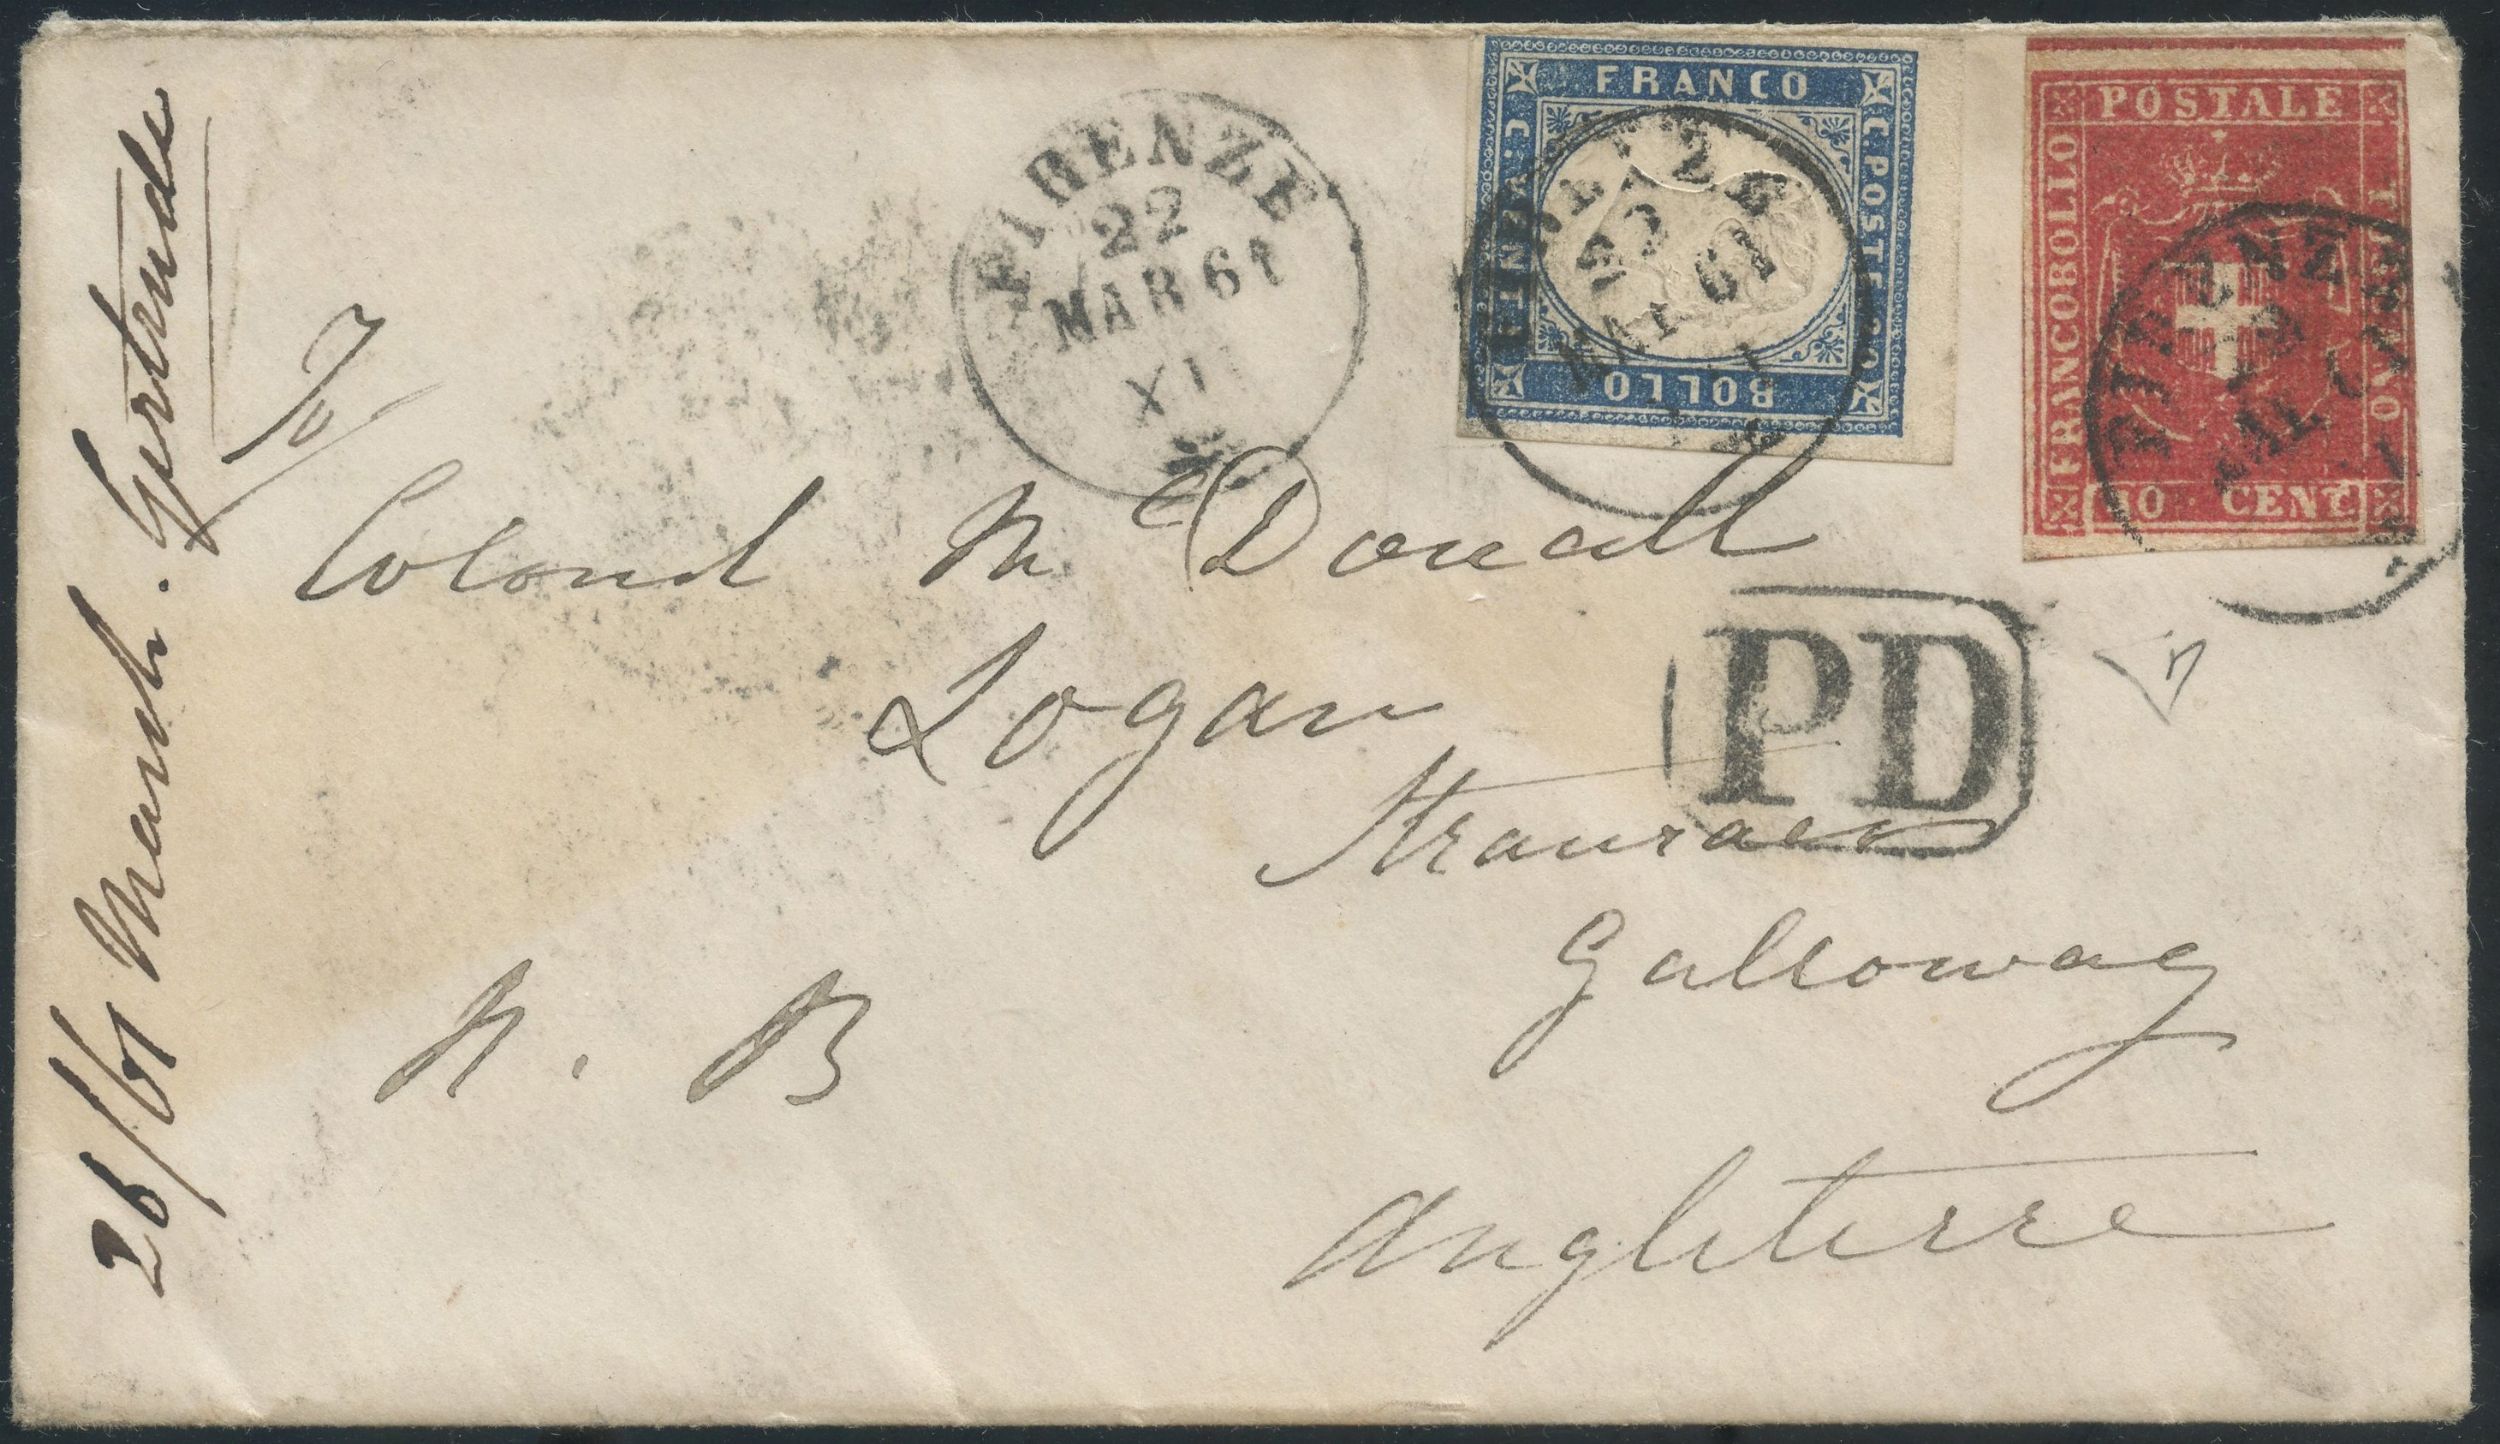 26/61 March. Gertrude
FIRENZE
22
MAR 61
XI
FRANCO
C. VENTI
C. POSTE 20
BOLLO
FIRENZE
22
MAR 61
FRANCOBOLLO
POSTALE
TOSCANO
CENT.
FIRENZE
To
Colonel McDouall
Logan
PD
Stranraer
Galloway
N. B
Angleterre